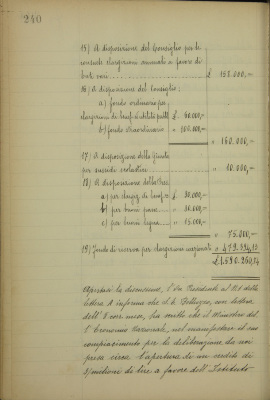 240
15) A disposizione del Consiglio per le
consuete elargizioni annuali a favore di
Enti vari £ 158.000,-
16) A disposizione del Consiglio:
a) fondo ordinario per
elargizioni di benef. e utilità pubbl. £ 60.000,-
b) fondo straordinario " 100.000,-
" 160.000,-
17) A disposizione della Giunta
per sussidi scolastici " 10.000,-
18) A disposizione della Pres.
a) per elargiz. di benef. £ 30.000,-
b) per buoni pane " 30.000,-
c) per buoni legna " 15.000,-
" 75.000,-
19) Fondo di riserva per elargizioni
£ 1.590.260,54
Apertasi la discussione, l'On. Presidente al N.1 della
lettera A informa che il S. Belluzzo, con lettera
dell' 8 corr. mese, ha scritto che il Ministero dell'
Economia Nazionale, nel manifestare il suo
compiacimento per la deliberazione da noi
presa circa l'apertura di un credito di
milioni di lire a favore dell'Istituto